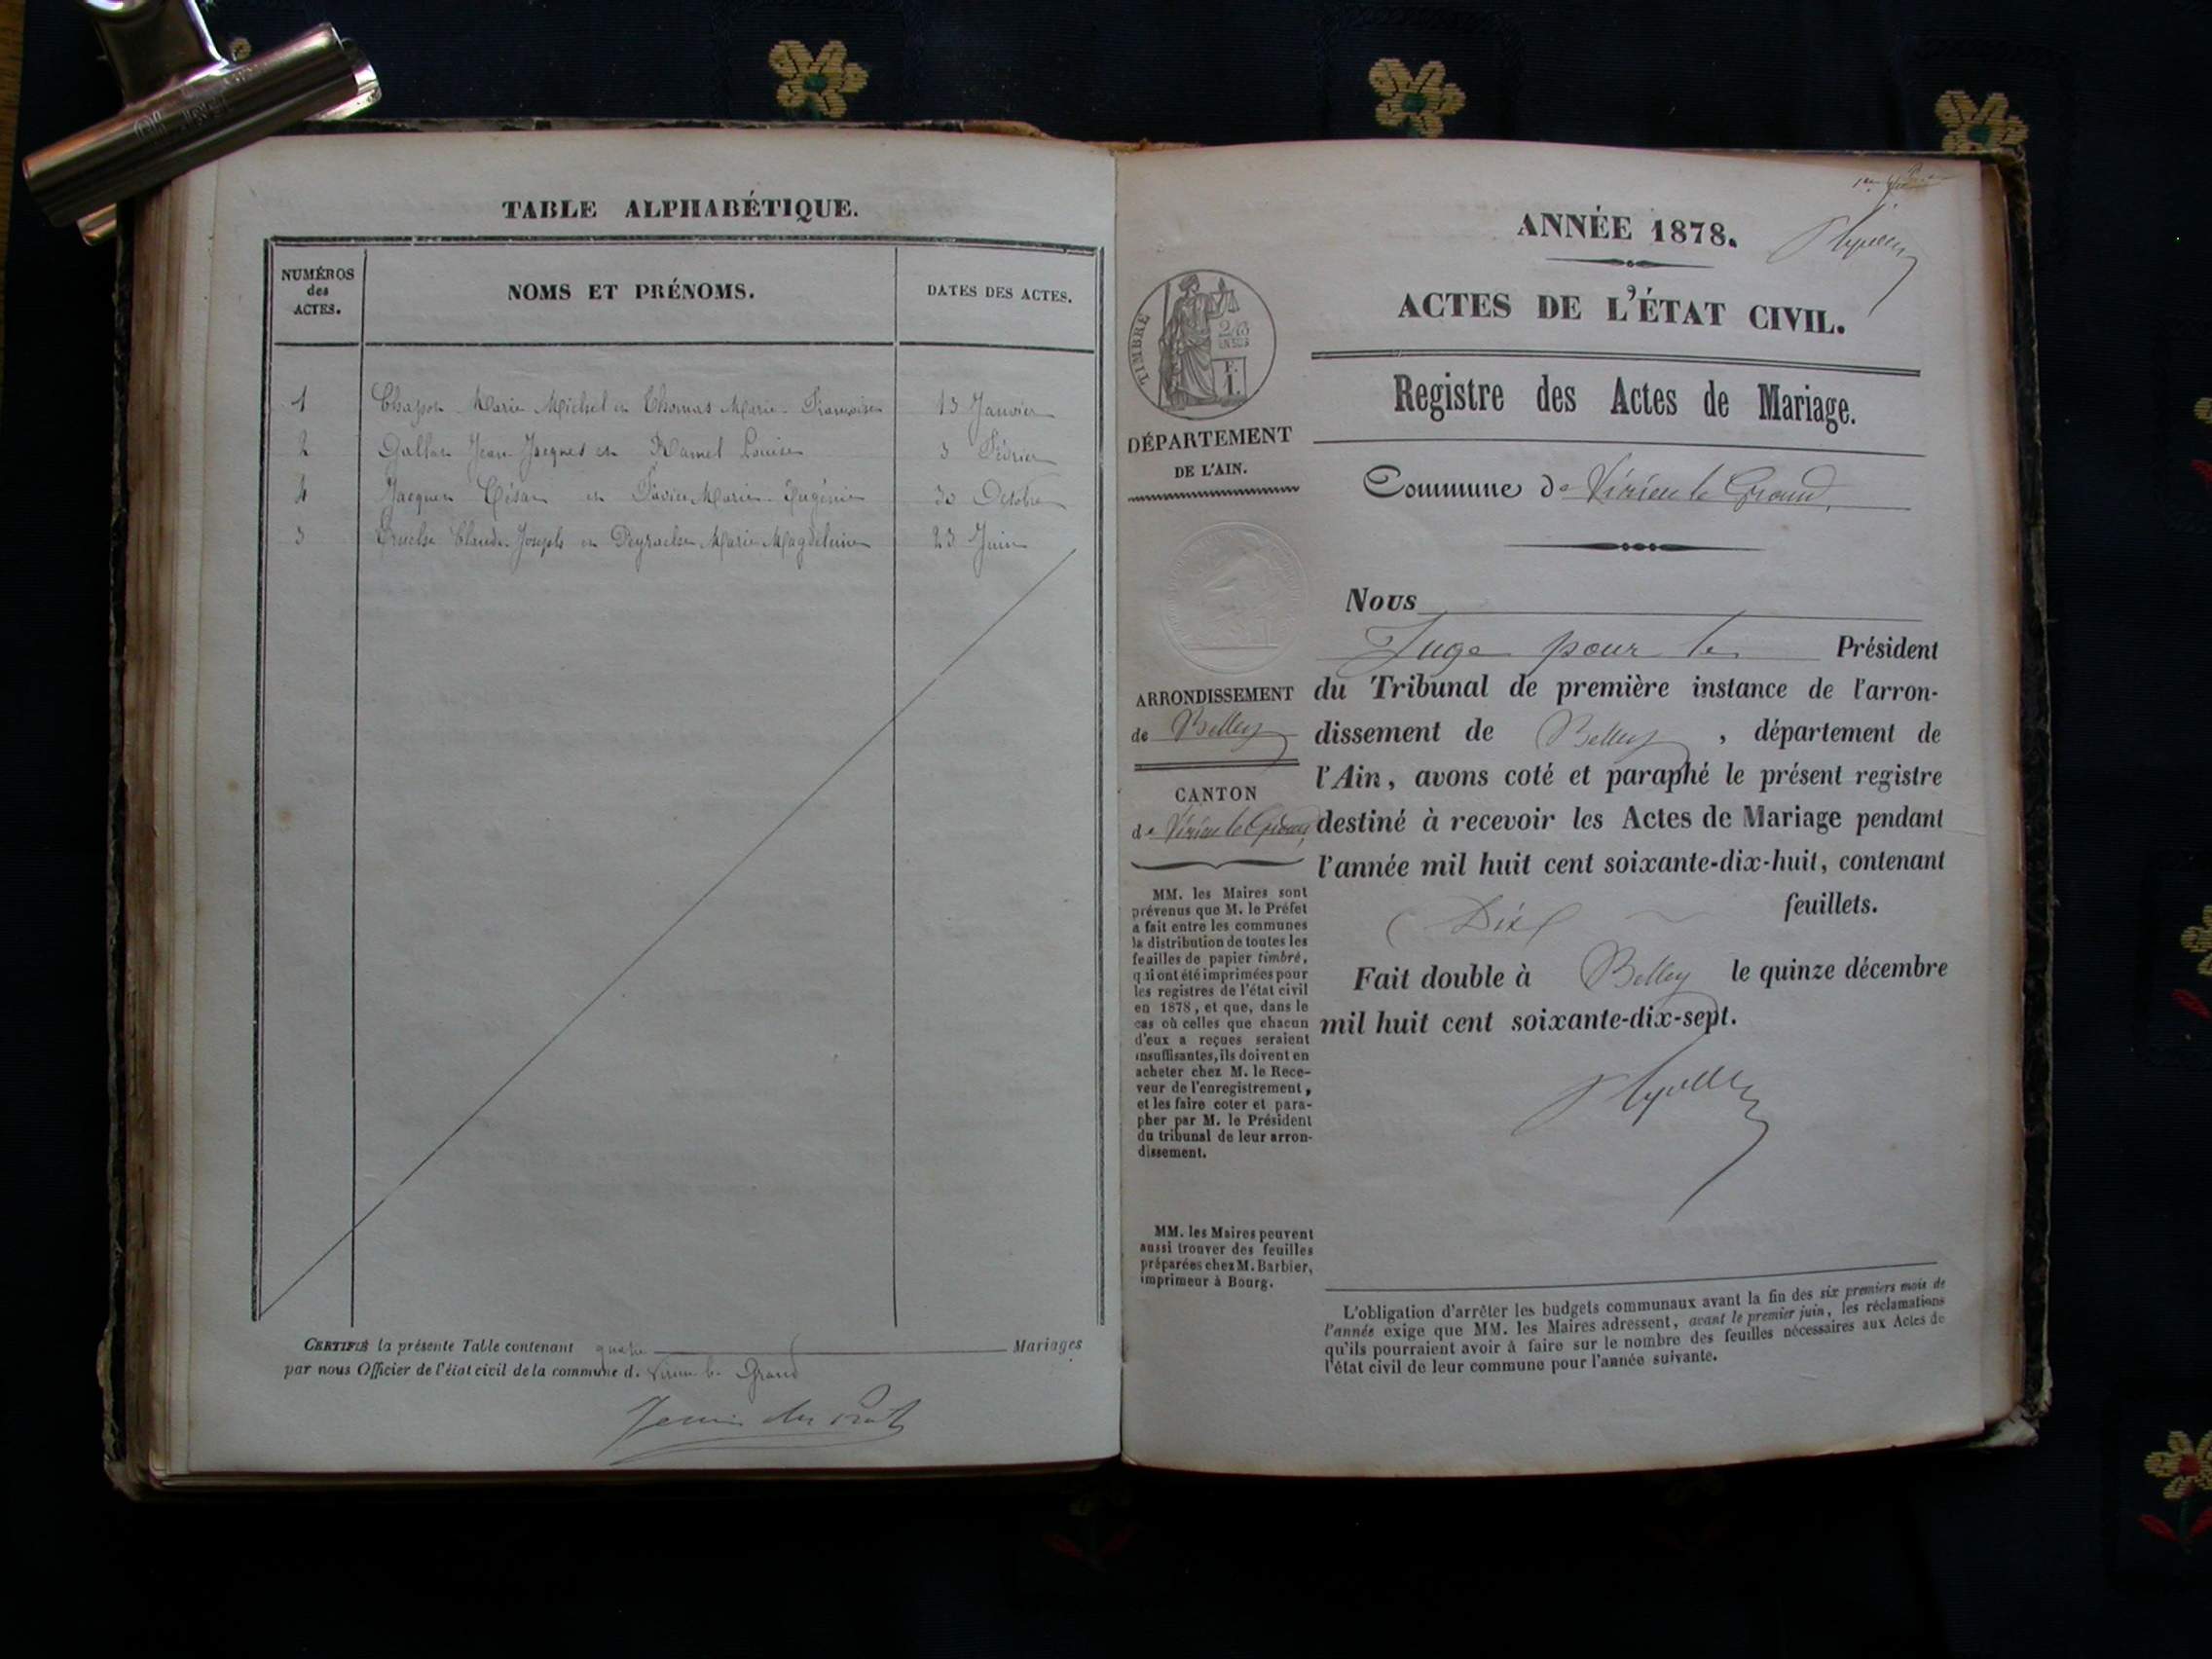 TABLE ALPHABÉTIQUE.
NUMÉROS
des
ACTES.
NOMS ET PRÉNOMS.
DATES DES ACTES.
1 Chapon Marie Michel et Thomas Marie-Françoise 13 Janvier
2 Jean-Jacques et Louise 3 Février
4 Jacquer César et Marie-Eugénie 30 Octobre
3 Claude-Joseph et Marie-Magdeleine 23 Juin
CERTIFIÉ la présente Table contenant quatre Mariages
par nous Officier de l'état civil de la commune d. Virieu le Grand
ANNÉE 1878.
ACTES DE L'ÉTAT CIVIL.
Registre des Actes de Mariage.
Commune de Virieu le Grand
TIMBRE
2/10
EN SUS
F.
1.
DÉPARTEMENT
DE L'AIN.
ARRONDISSEMENT
de Belley
CANTON
de Virieu le Grand
MM. les Maires sont
prévenus que M. le Préfet
a fait entre les communes
la distribution de toutes les
feuilles de papier timbré,
qui ont été imprimées pour
les registres de l'état civil
en 1878, et que, dans le
cas où celles que chacun
d'eux a reçues seraient
insuffisantes, ils doivent en
acheter chez M. le Rece-
veur de l'enregistrement,
et les faire coter et para-
pher par M. le Président
du tribunal de leur arron-
dissement.
MM. les Maires peuvent
aussi trouver des feuilles
préparées chez M. Barbier,
imprimeur à Bourg.
Nous
Juge pour le Président
du Tribunal de première instance de l'arron-
dissement de Belley, département de
l'Ain, avons coté et paraphé le présent registre
destiné à recevoir les Actes de Mariage pendant
l'année mil huit cent soixante-dix-huit, contenant
Dix feuillets.
Fait double à Belley le quinze décembre
mil huit cent soixante-dix-sept.
L'obligation d'arrêter les budgets communaux avant la fin des six premiers mois de
l'année exige que MM. les Maires adressent, avant le premier juin, les réclamations
qu'ils pourraient avoir à faire sur le nombre des feuilles nécessaires aux Actes de
l'état civil de leur commune pour l'année suivante.